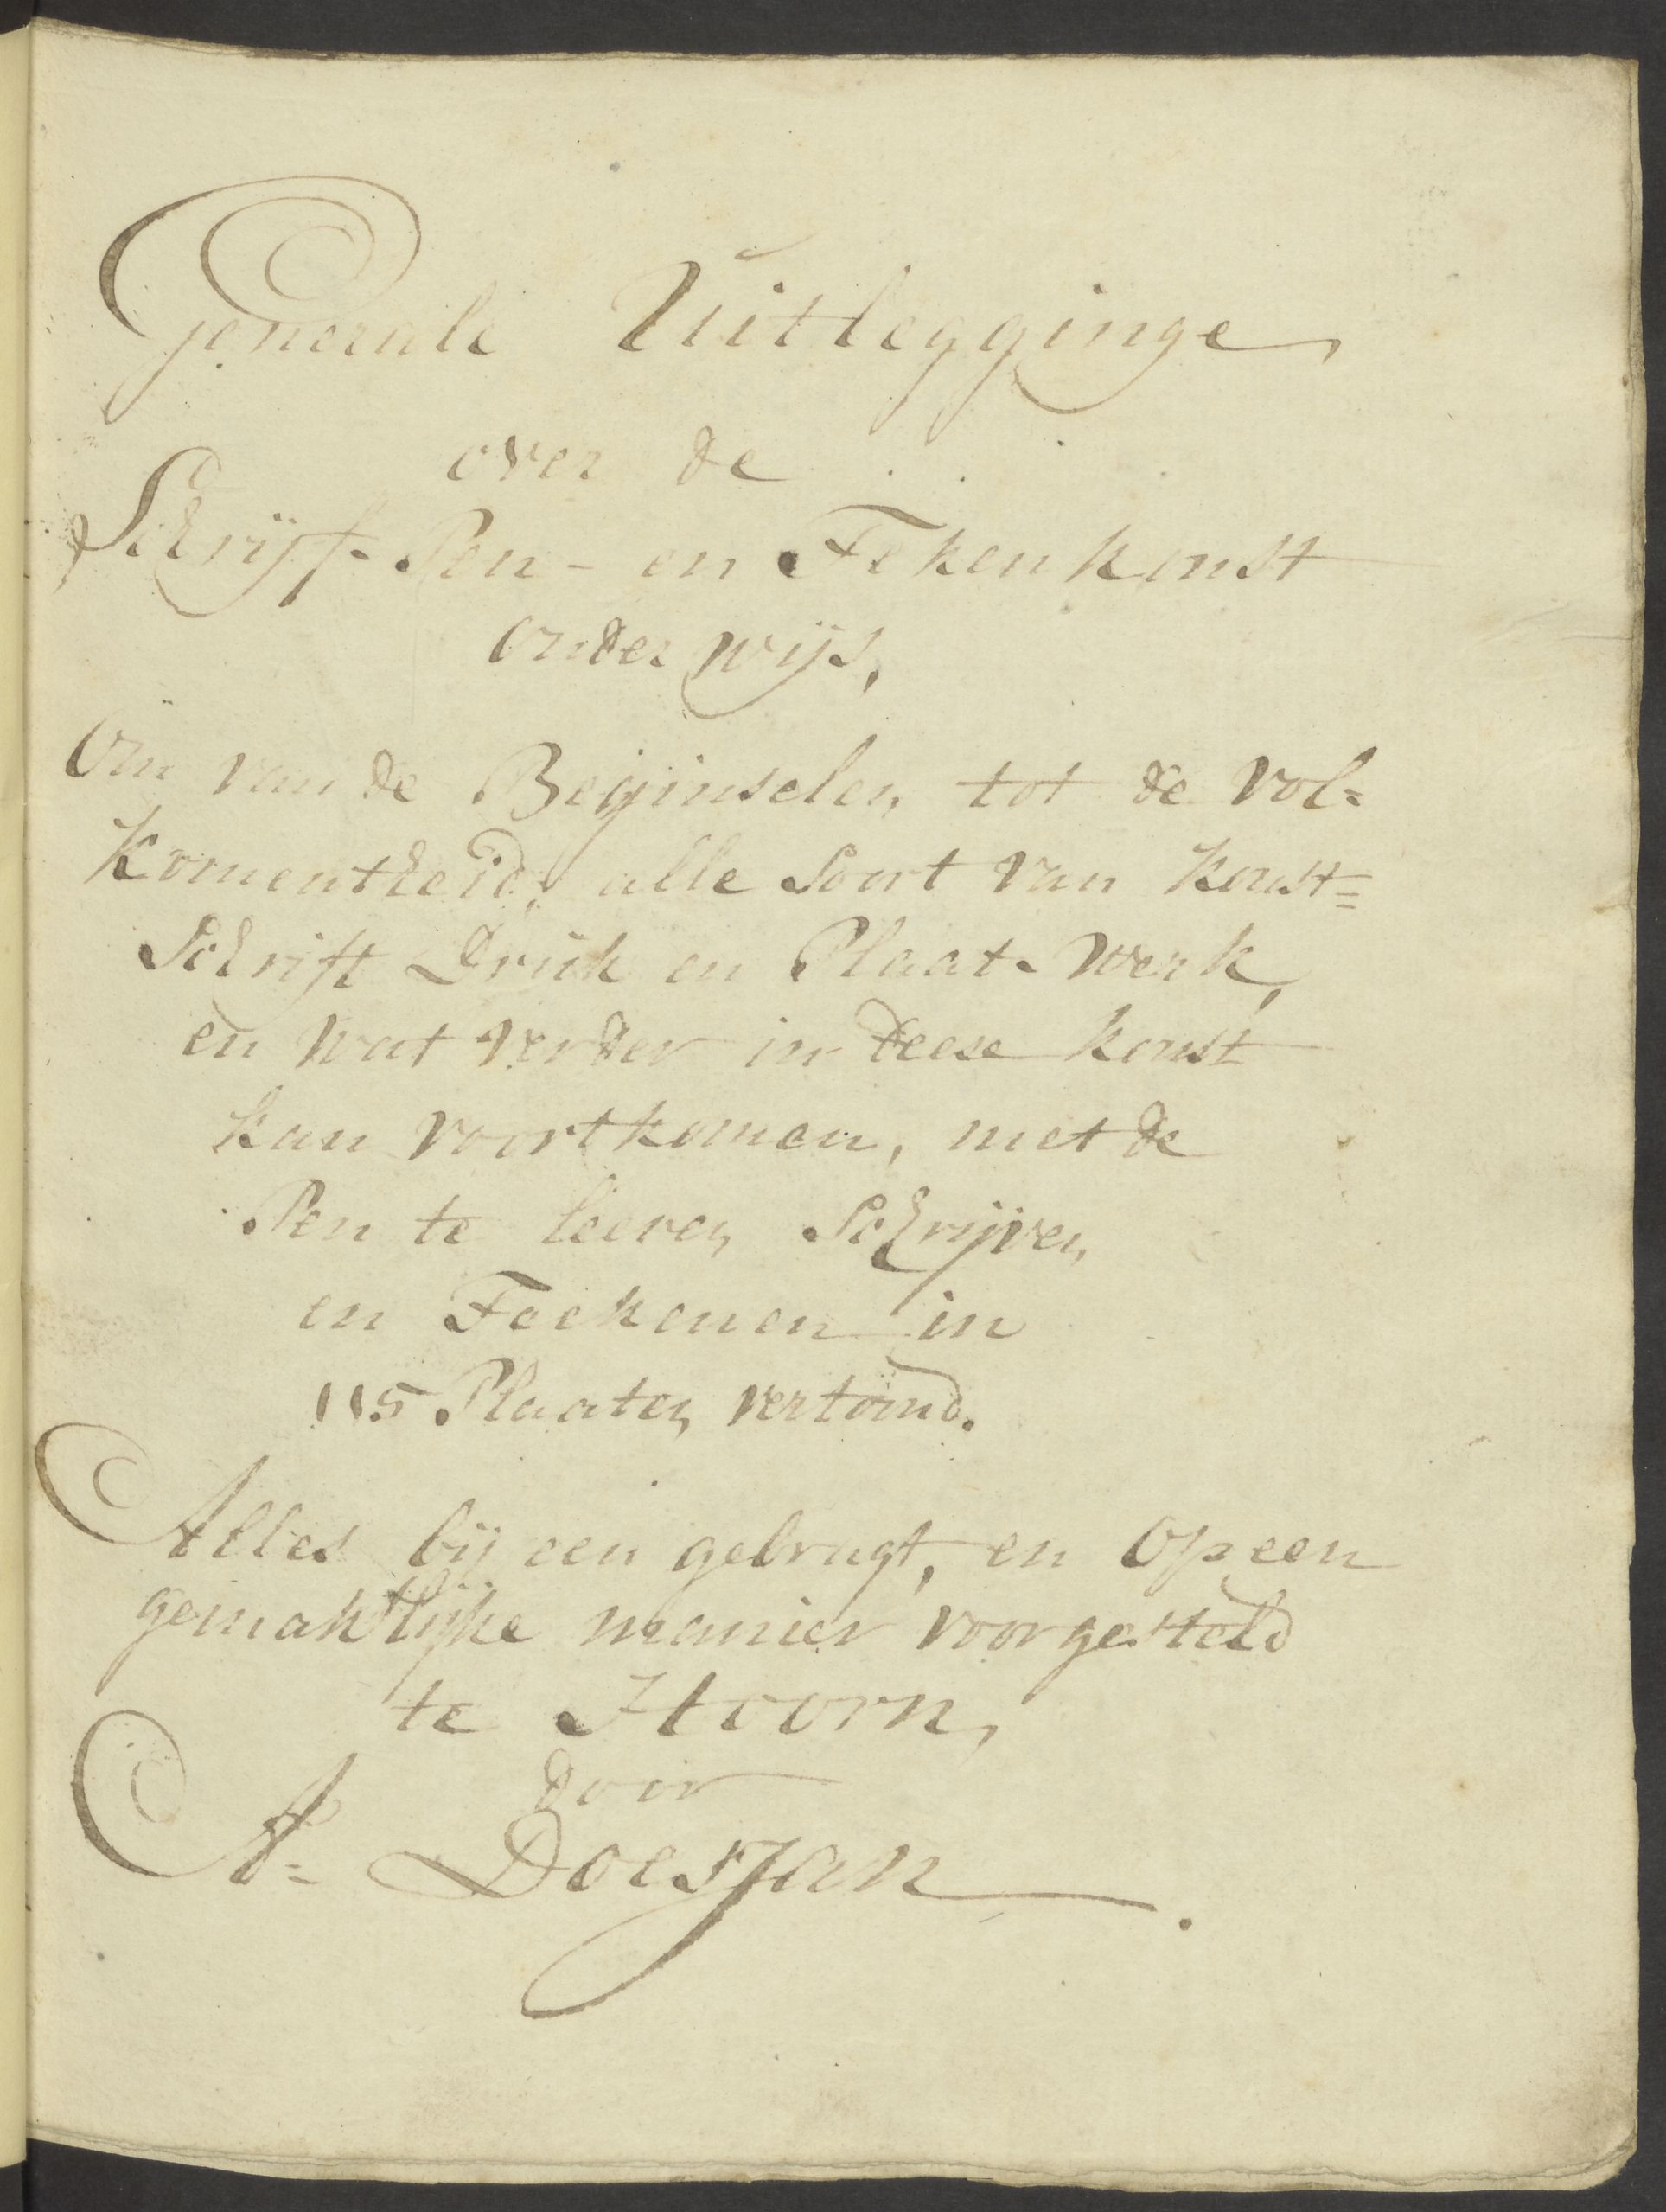 Generale Uitlegginge,
over de
Schrijf- Pen- en Tekenkonst
onderwijs,
Om van de Beginselen tot de Vol=
komentheid, alle Soort van Konst=
Schrift Druk en Plaat-Werk,
en wat verder in deese konst
kan voortkomen, met de
Pen te leeren Schrijven
en Teekenen in
115 Plaaten vertoond.
Alles bij een gebragt, en op een
gemaktlijke manier voorgesteld
te Hoorn,
door
A= Doesjan.